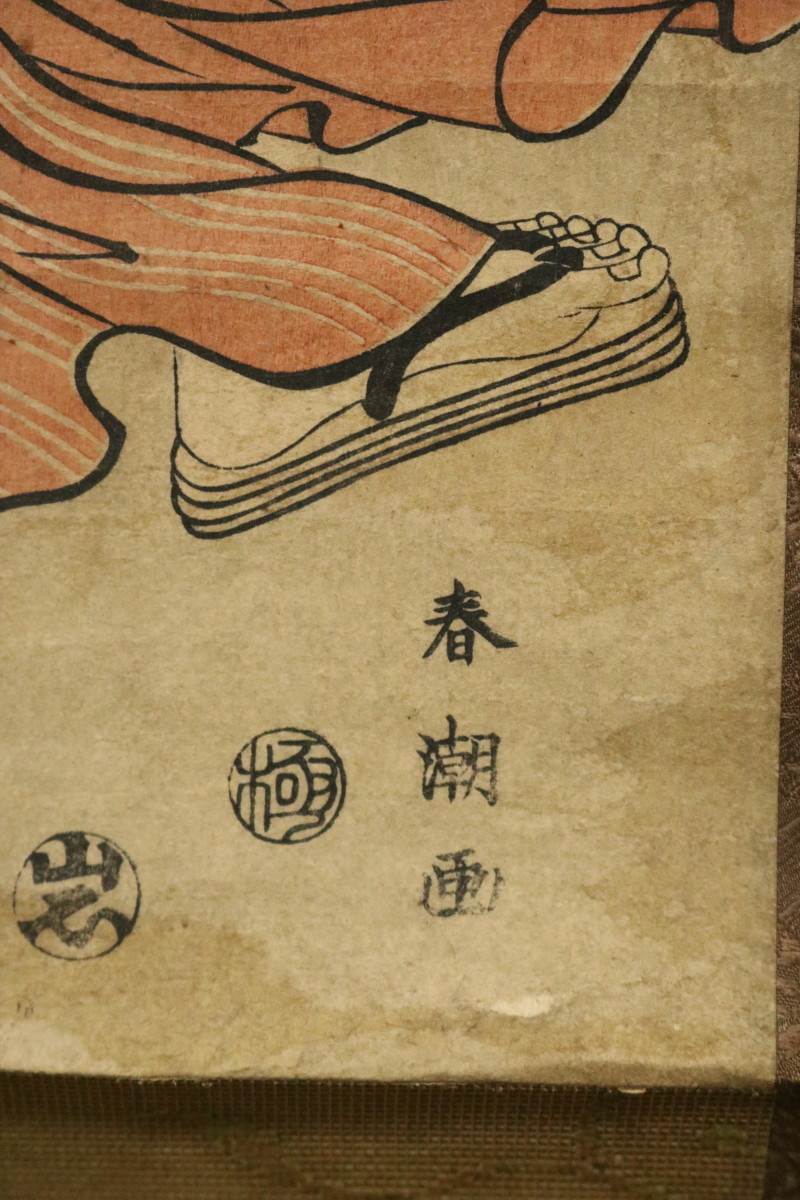 春潮画
極
岩